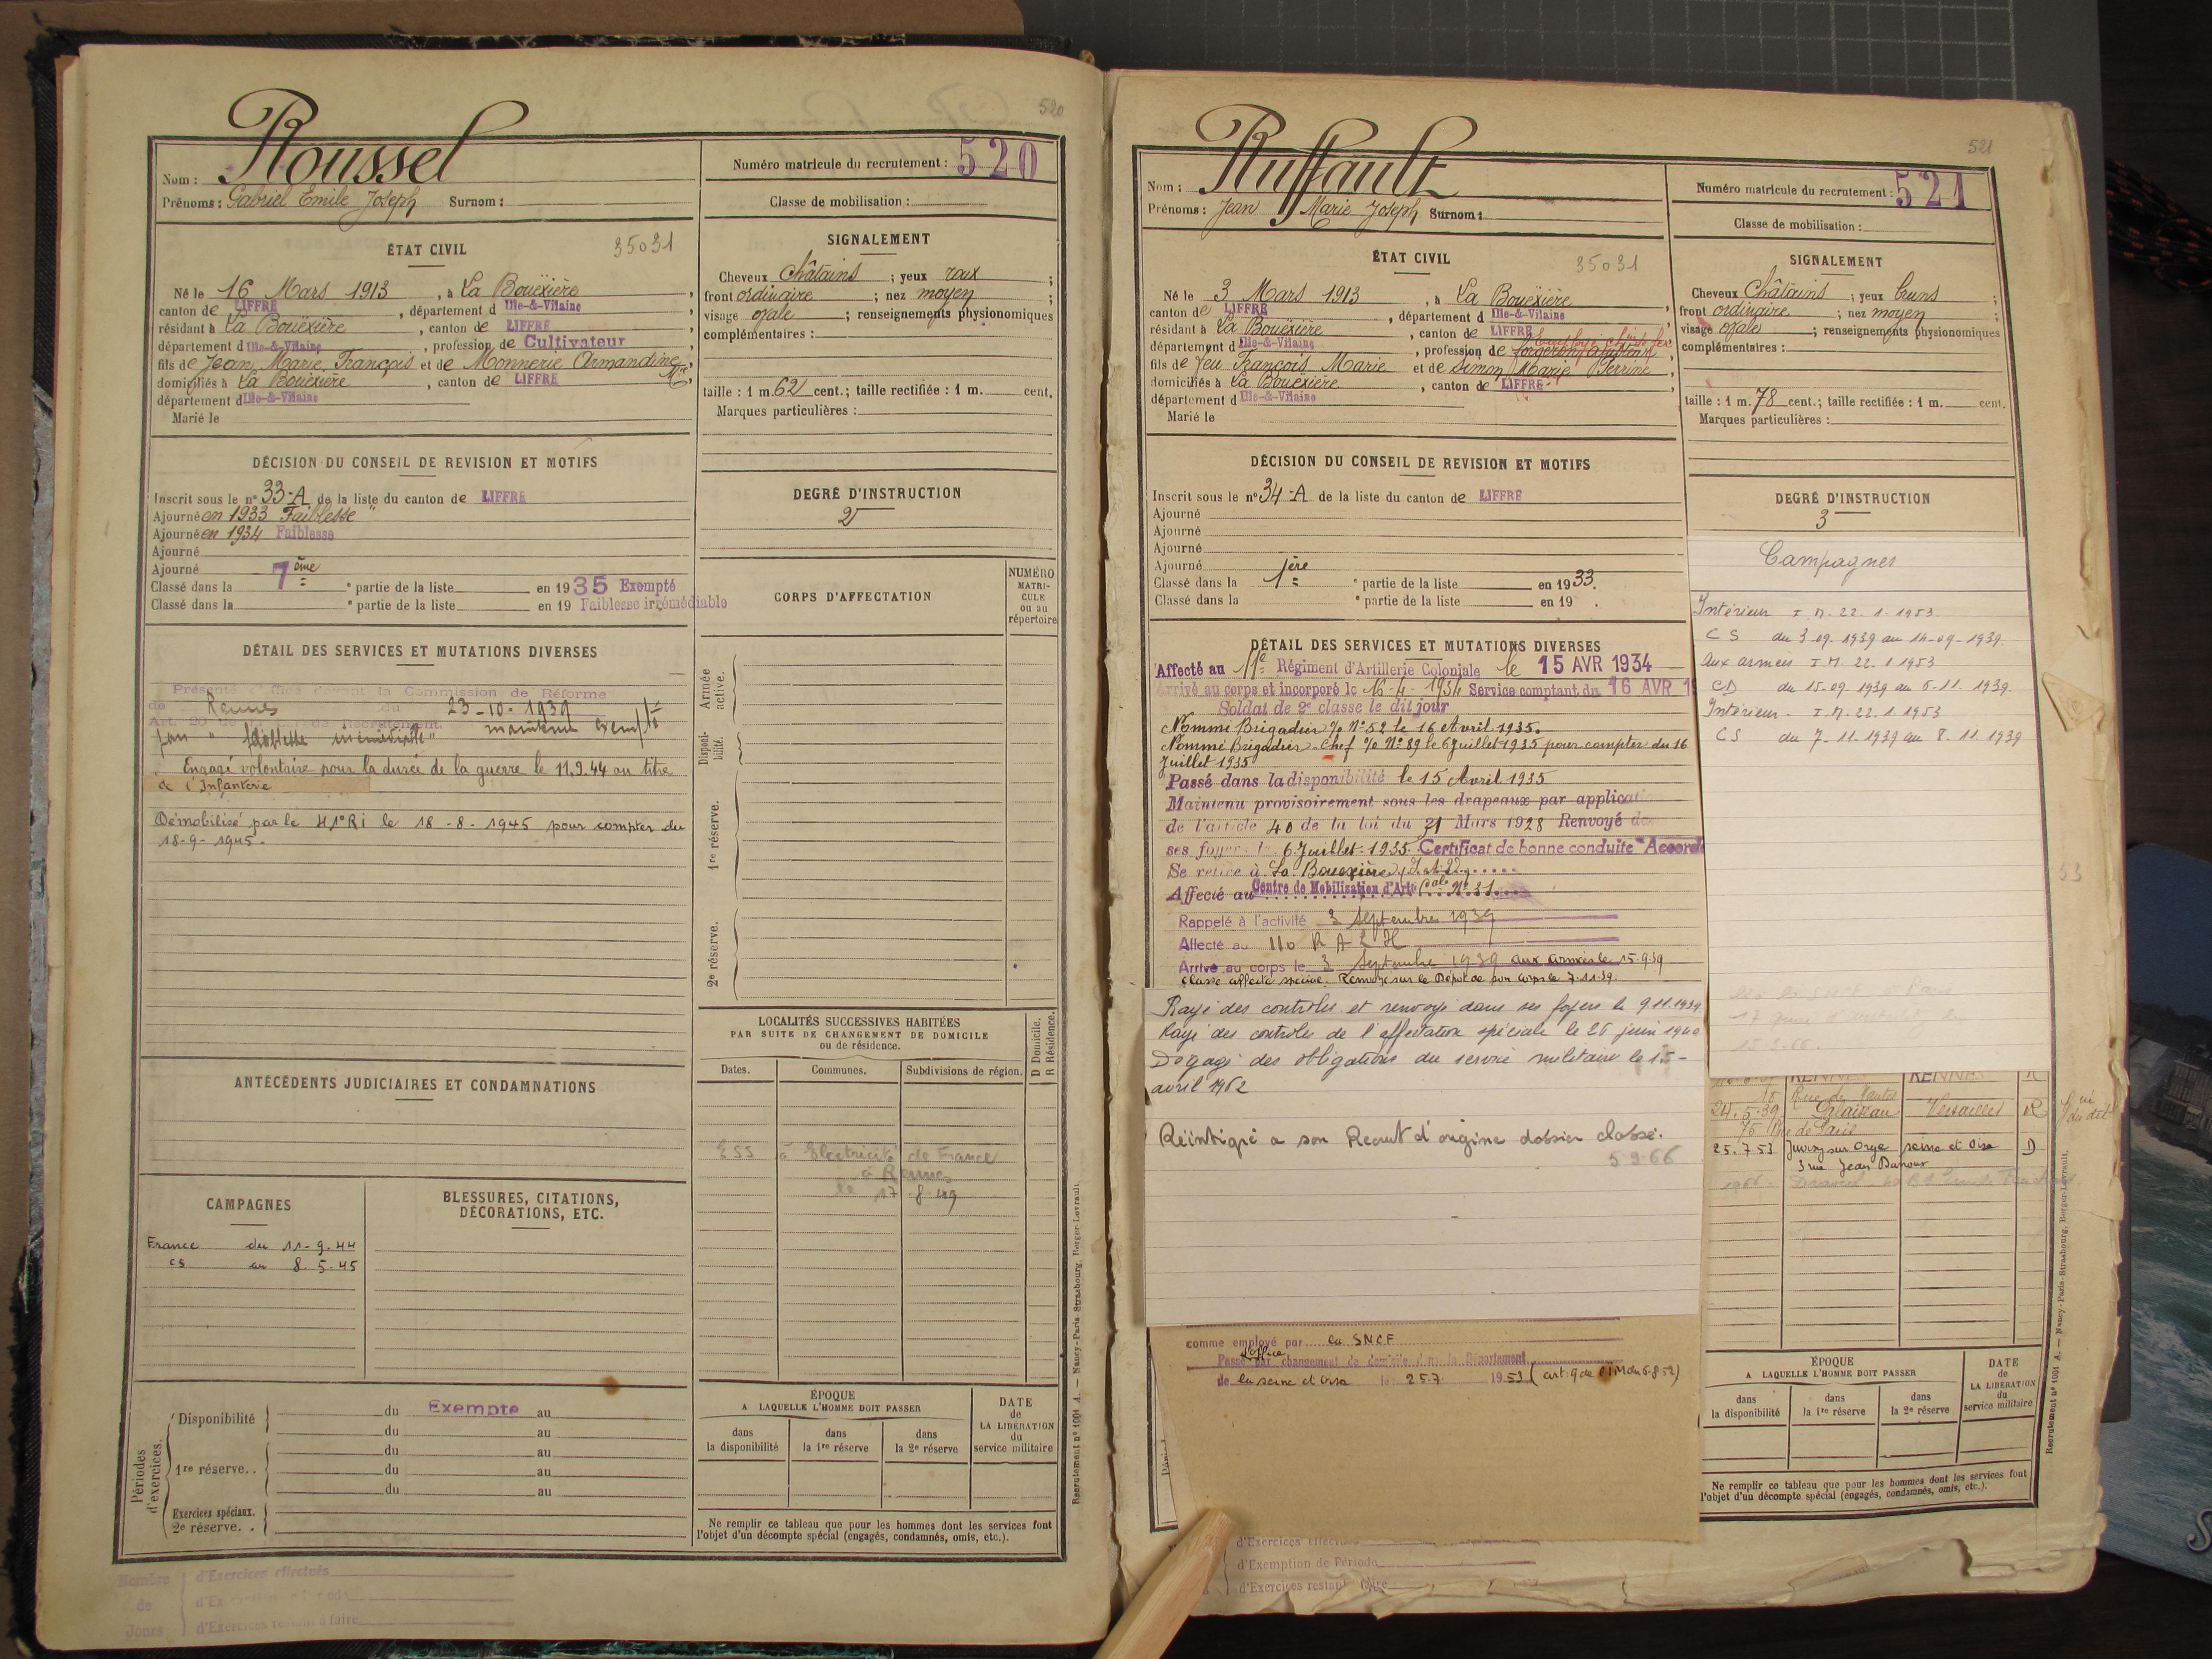 520
Roussel
Nom :
Prénoms : Gabriel Emile Joseph Surnom :
Numéro matricule du recrutement : 520
Classe de mobilisation :
ÉTAT CIVIL
35031
Né le 16 Mars 1913, à La Bouëxière,
canton de LIFFRÉ, département d Ille-&-Vilaine,
résidant à La Bouëxière, canton de LIFFRÉ,
département d Ille-&-Vilaine, profession de Cultivateur
fils de Jean Marie François et de Monnerie Armandine Mie,
domiciliés à La Bouëxière, canton de LIFFRÉ,
département d Ille-&-Vilaine
Marié le
SIGNALEMENT
Cheveux Châtains ; yeux roux ;
front ordinaire ; nez moyen ;
visage ovale ; renseignements physionomiques
complémentaires :
taille : 1 m. 62 cent. ; taille rectifiée : 1 m. cent.
Marques particulières :
DÉCISION DU CONSEIL DE REVISION ET MOTIFS
Inscrit sous le n° 33-A de la liste du canton de LIFFRÉ
Ajourné en 1933 "Faiblesse"
Ajourné en 1934 Faiblesse
Ajourné
Ajourné
Classé dans la 7ème e partie de la liste en 1935 Exempté
Classé dans la e partie de la liste en 19 Faiblesse irrémédiable
DEGRÉ D'INSTRUCTION
2
CORPS D'AFFECTATION
NUMÉRO
MATRI-
CULE
ou au
répertoire
Armée active.
Disponi-bilité.
1re réserve.
2e réserve.
DÉTAIL DES SERVICES ET MUTATIONS DIVERSES
Présenté d'office devant la Commission de Réforme
de Rennes du 23-10-1939
Art. 20 de Recrutement. maintenu exempté
par "faiblesse irrémédiable"
Engagé volontaire pour la durée de la guerre le 11.9.44 au titre
de l'Infanterie
Démobilisé par le 41° RI le 18-8-1945 pour compter du
18-9-1945.
LOCALITÉS SUCCESSIVES HABITÉES
PAR SUITE DE CHANGEMENT DE DOMICILE
ou de résidence.
D Domicile.
R Résidence.
Dates. Communes. Subdivisions de région.
ESS à Electricité de France
à Rennes
le 17-8-49
ANTÉCÉDENTS JUDICIAIRES ET CONDAMNATIONS
CAMPAGNES
France du 11-9-44
CS au 8.5.45
BLESSURES, CITATIONS,
DÉCORATIONS, ETC.
Périodes d'exercices.
Disponibilité du Exempté au
du au
1re réserve.. du au
du au
du au
Exercices spéciaux.
2e réserve. .
ÉPOQUE
A LAQUELLE L'HOMME DOIT PASSER
dans la disponibilité
dans la 1re réserve
dans la 2e réserve
DATE
de
LA LIBÉRATION
du
service militaire
Ne remplir ce tableau que pour les hommes dont les services font
l'objet d'un décompte spécial (engagés, condamnés, omis, etc.).
Recrutement n° 1001 A. — Nancy-Paris-Strasbourg, Berger-Levrault.
Nombre
de
Jours
d'Exercices effectués
d'Exercices restant à faire
521
Ruffault
Nom :
Prénoms : Jean Marie Joseph Surnom :
Numéro matricule du recrutement : 521
Classe de mobilisation :
ÉTAT CIVIL
35031
Né le 3 Mars 1913, à La Bouëxière
canton de LIFFRÉ, département d Ille-&-Vilaine,
résidant à La Bouëxière, canton de LIFFRÉ
département d Ille-&-Vilaine, profession de forgeron
fils de feu François Marie et de Simon Marie Perrine,
domiciliés à La Bouëxière, canton de LIFFRÉ,
département d Ille-&-Vilaine
Marié le
SIGNALEMENT
Cheveux Châtains ; yeux bruns ;
front ordinaire ; nez moyen ;
visage ovale ; renseignements physionomiques
complémentaires :
taille : 1 m. 78 cent. ; taille rectifiée : 1 m. cent.
Marques particulières :
DÉCISION DU CONSEIL DE REVISION ET MOTIFS
Inscrit sous le n° 34-A de la liste du canton de LIFFRÉ
Ajourné
Ajourné
Ajourné
Ajourné
Classé dans la 1ère e partie de la liste en 1933.
Classé dans la e partie de la liste en 19 .
DEGRÉ D'INSTRUCTION
3
Campagnes
Intérieur I.M. 22.1.1953
CS du 3-09-1939 au 14-09-1939.
Aux armées I.M. 22.1.1953
CD du 15-09-1939 au 6-11-1939.
Intérieur - I.M. 22.1.1953
CS du 7-11-1939 au 8.11.1939
DÉTAIL DES SERVICES ET MUTATIONS DIVERSES
Affecté au 11e Régiment d'Artillerie Coloniale le 15 AVR 1934
Arrivé au corps et incorporé le 16-4-1934 Service comptant du 16 AVR 1
Soldat de 2e classe le dit jour
Nommé Brigadier % N° 52 le 16 Avril 1935.
Nommé Brigadier Chef % N° 89 le 6 Juillet 1935 pour compter du 16
Juillet 1935
Passé dans la disponibilité le 15 Avril 1935
Maintenu provisoirement sous les drapeaux par applicati
de l'article 40 de la loi du 31 Mars 1928 Renvoyé da
ses foyers le 6 Juillet 1935 Certificat de bonne conduite "Accord
Se retire à La Bouexière (I. et V.)
Affecté au Centre de Mobilisation d'Artie Cole N° 31
Rappelé à l'activité 3 Septembre 1939
Affecté au 110 R A L H
Arrivé au corps le 3 Septembre 1939 aux armées le 15-9-39
classe affecté spécial. Renvoyé sur le Dépôt de son corps le 7-11-39.
Rayé des contrôles et renvoyé dans ses foyers le 9.11.1939
Rayé des contrôles de l'affectation spéciale le 26 juin 1940
Dégagé des obligations du service militaire le 15-
avril 1962
Réintégré a son Recrut d'origine dossier classé.
5-9-66
RENNES RENNES R
18 Rue de Nantes
24.5.39 Palaiseau Versailles R
75 Rue de Paris
25.7.53 Juvisy sur Orge seine et Oise D
3 rue Jean
1966
comme employé par la SNCF
d'office
Passé par changement de domicile dans le Département
de la seine et Oise le 25.7 1953 (art. 9 de l'IM du 6.8.52)
ÉPOQUE
A LAQUELLE L'HOMME DOIT PASSER
dans la disponibilité
dans la 1re réserve
dans la 2e réserve
DATE
de
LA LIBÉRATION
du
service militaire
Ne remplir ce tableau que pour les hommes dont les services font
l'objet d'un décompte spécial (engagés, condamnés, omis, etc.).
Recrutement n° 1001 A. — Nancy-Paris-Strasbourg, Berger-Levrault.
d'Exercices effectués
d'Exemption de Période
d'Exercices restant à faire